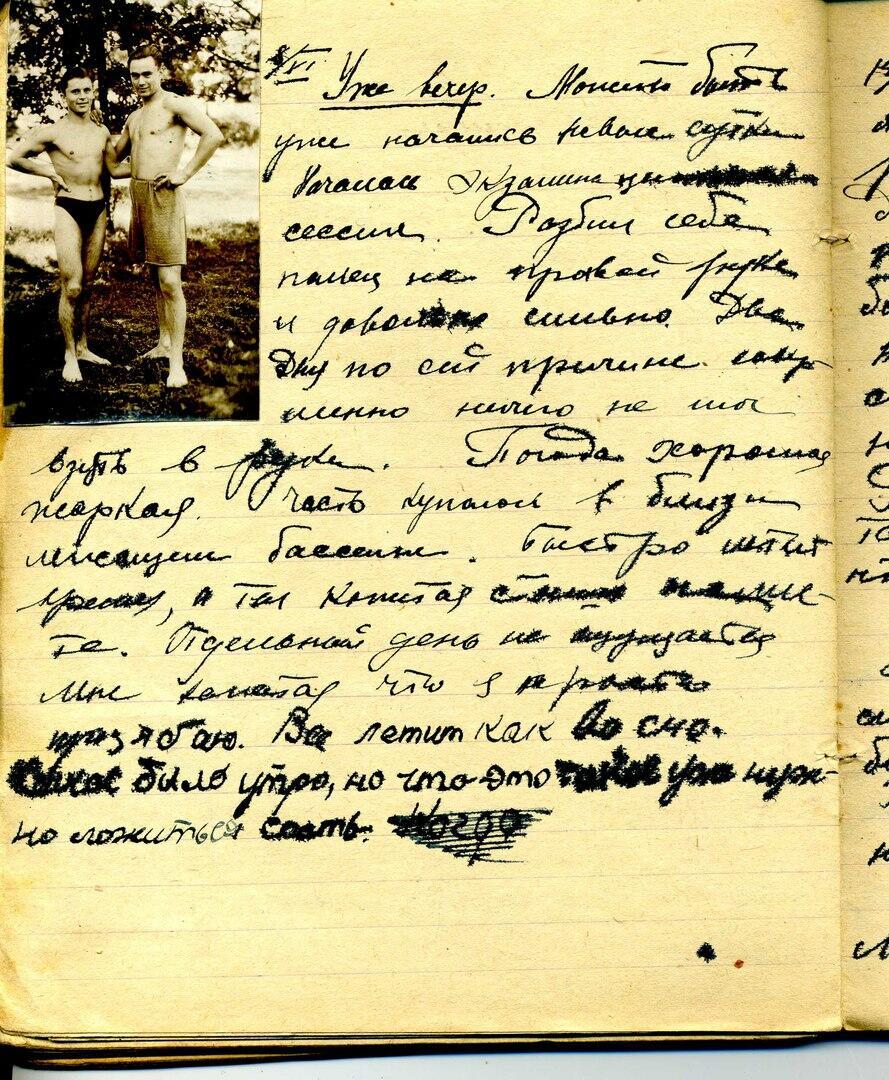 /VI
Уже вечер. Может быть
уже начались новые сутки
Началась Экзамина ци
сессия. Разбил себе
палец на правой руке
и довольно сильно. Два
дня по сей причине
ничего не мог
взять в руки. Погода хорошая
жаркая. Часть купался в близи
лежащем бассейне. Быстро летит
время, и так кажется
те. Отдельный день не ощущается
Мне кажется что я просто
прозябаю. Все летит как во сне.
было утро, но что это такое уже нуж-
но ложиться спать. Когда